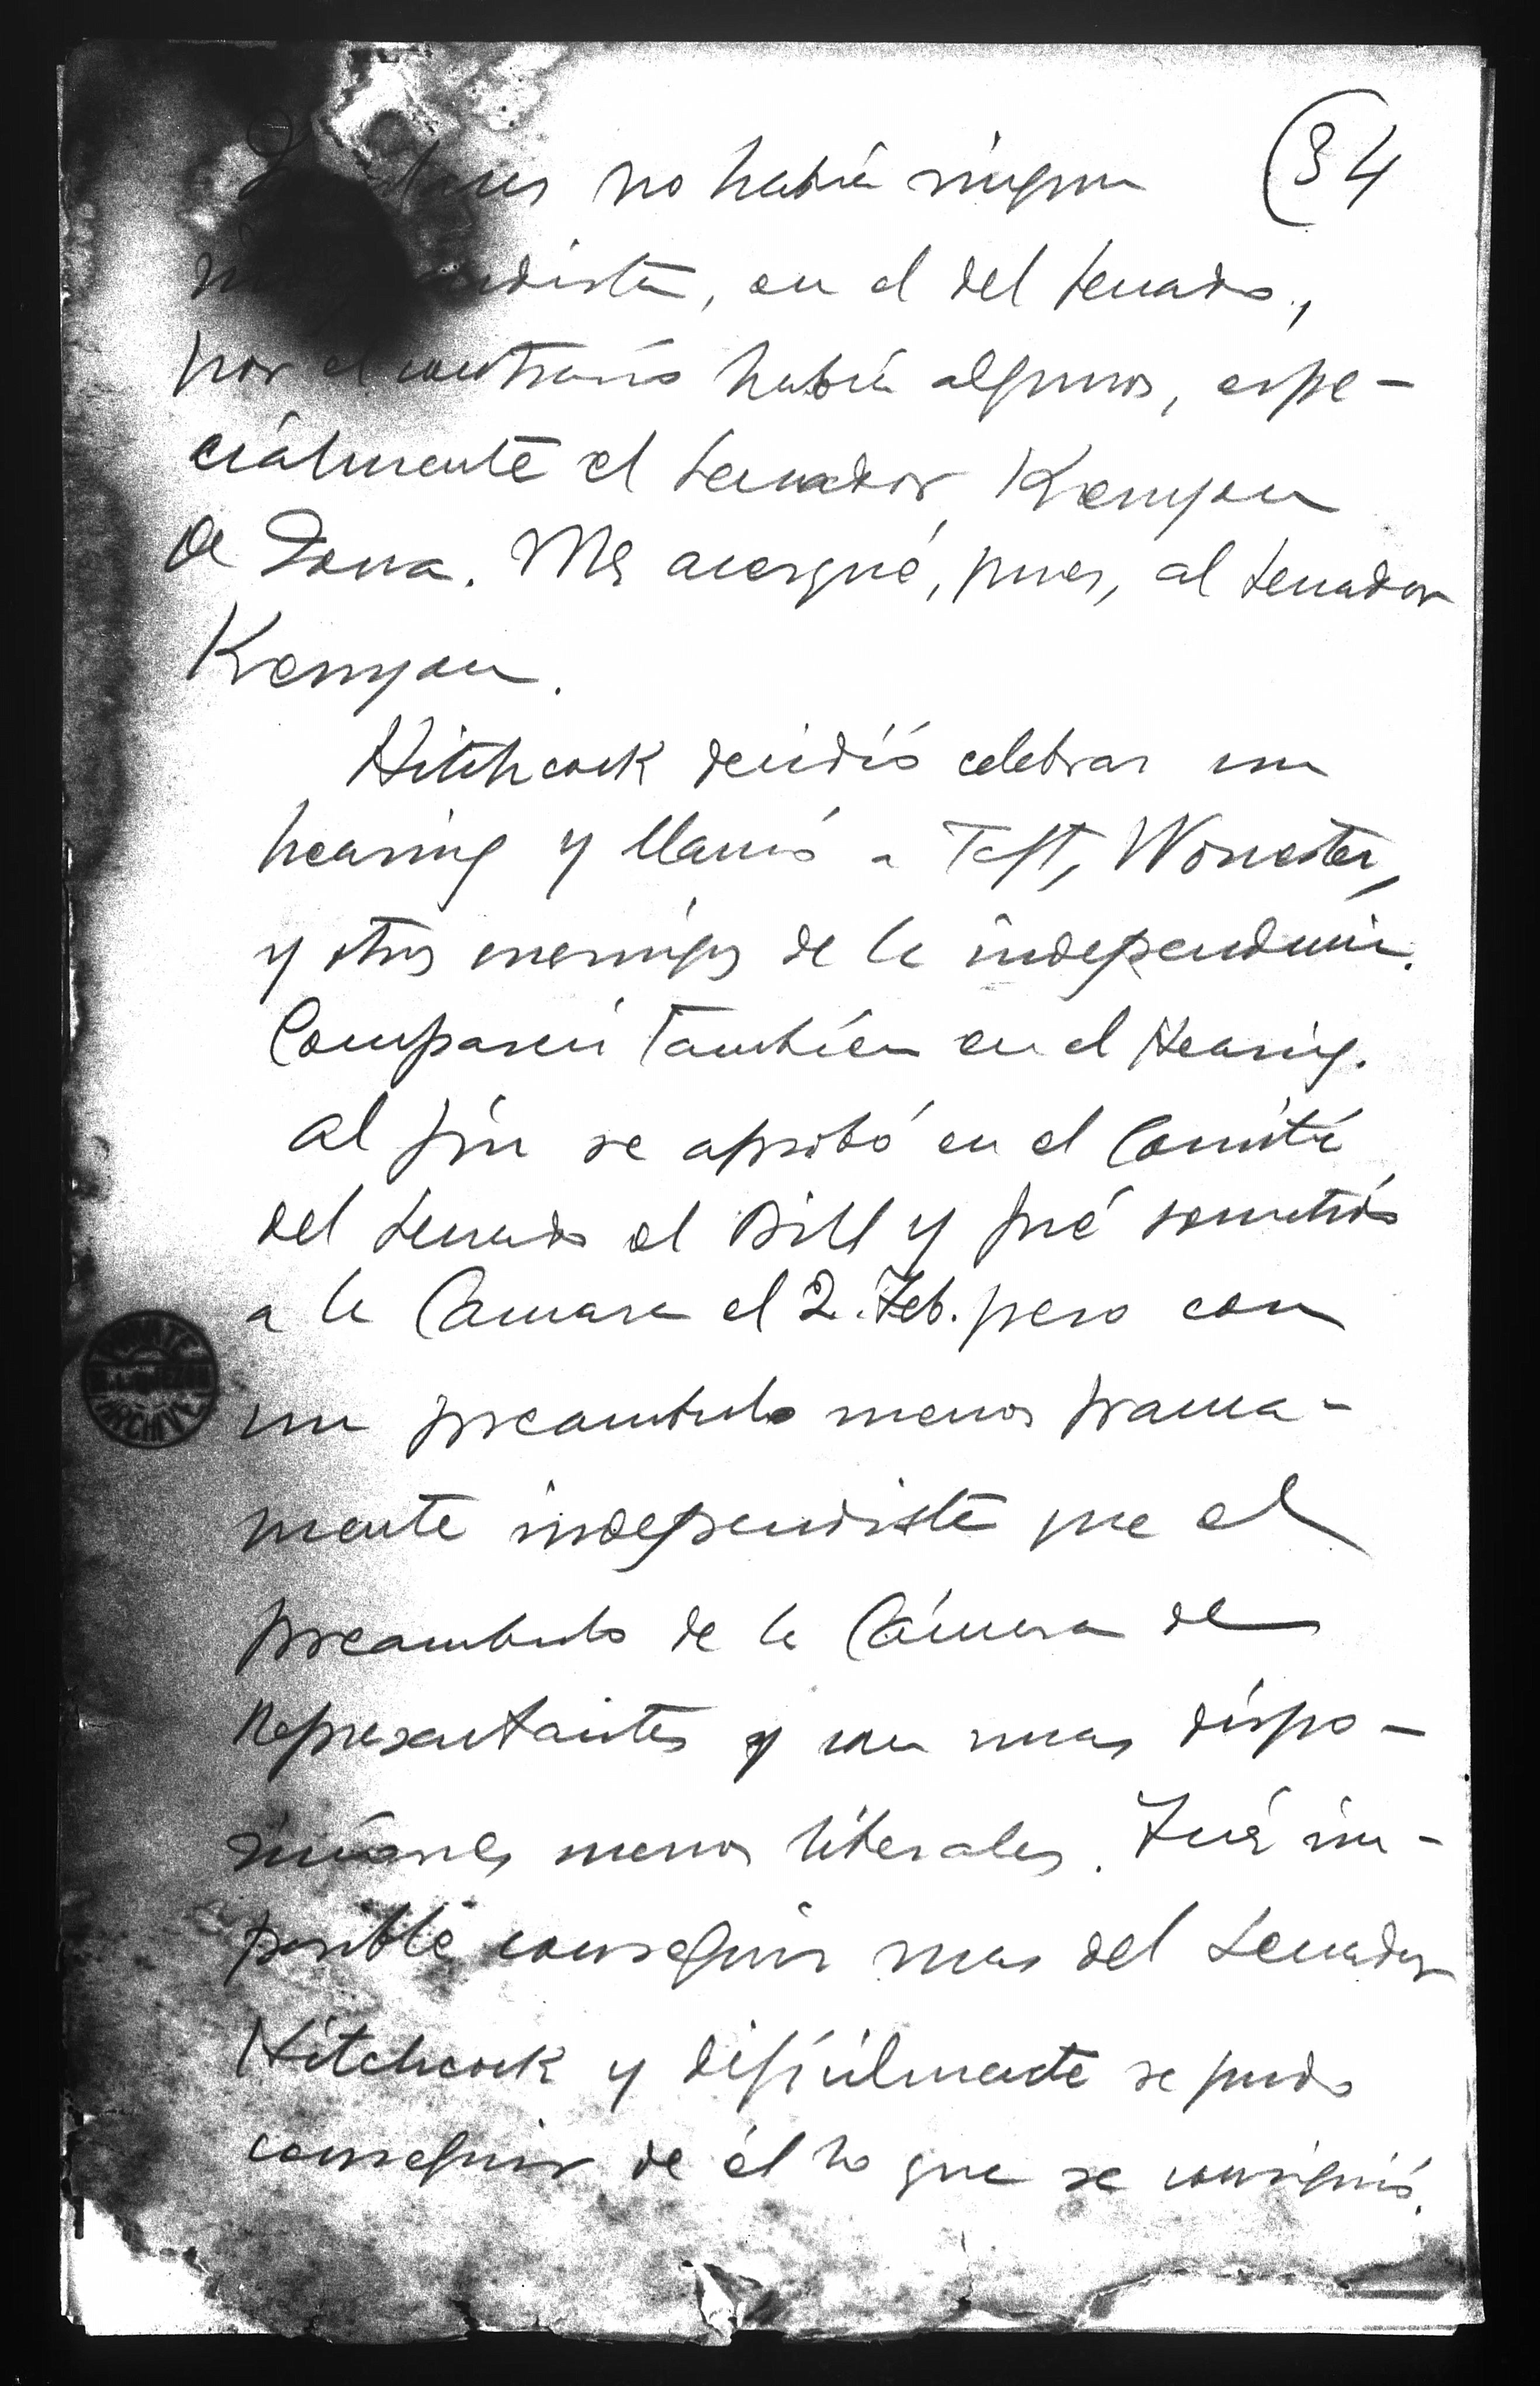 (34
no había ningun
en el del Senado,
por el contrario había algunos, espe-
cialmente el Senador Kenyon
de Iowa. Me acerqué, pues, al Senador
Kenyon.
Hitchcock decidió celebrar un
hearing y llamó a Taft, Worcester,
y otros enemigos de la independencia.
Comparecí tambien en el Hearing.
Al fin se aprobó en el Comité
del Senado el Bill y fué sometido
a la Camara el 2. Feb. pero con
un preambulo menos franca-
mente independista que el
preambulo de la Cámara de
Representantes y con unas dispo-
siciones menos liberales. Fué im-
posible conseguir mas del Senador
Hitchcock y dificilmente se pudo
conseguir de él lo que se consiguió.
PRIVATE
M.L. QUEZON
ARCHIVE